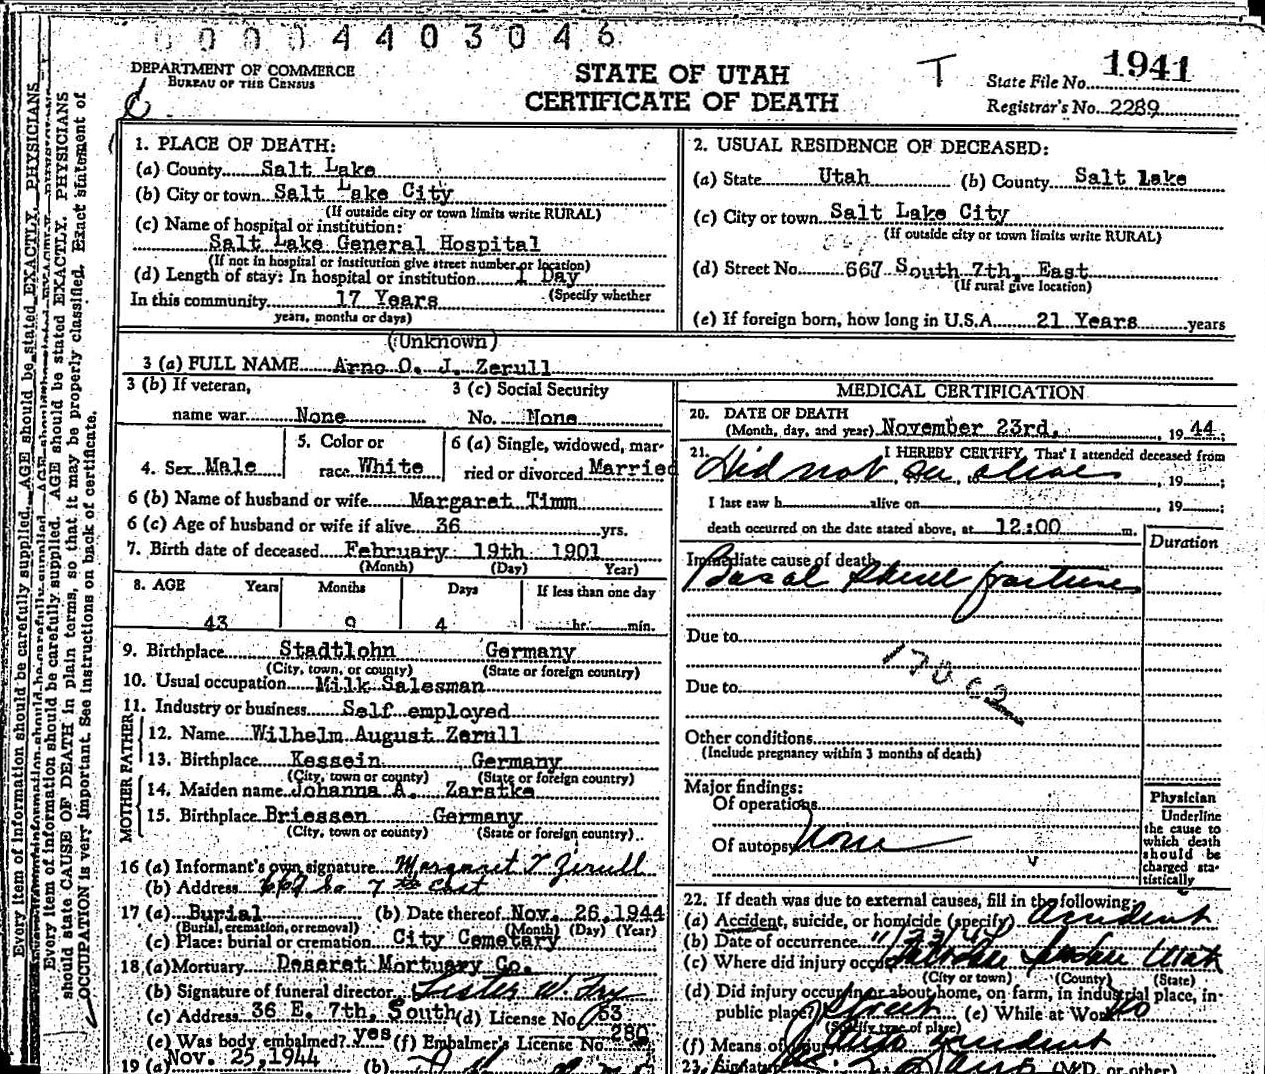 0 0 0 0 4 4 0 3 0 4 6
DEPARTMENT OF COMMERCE
BUREAU OF THE CENSUS
STATE OF UTAH
CERTIFICATE OF DEATH
T
State File No. 1941
Registrar's No. 2289
Every item of information should be carefully supplied. AGE should be stated EXACTLY. PHYSICIANS
Every item of information should be carefully supplied. AGE should be stated EXACTLY. PHYSICIANS
should state CAUSE OF DEATH in plain terms, so that it may be properly classified. Exact statement of
OCCUPATION is very important. See instructions on back of certificate.
1. PLACE OF DEATH:
(a) County Salt Lake
(b) City or town Salt Lake City
(If outside city or town limits write RURAL)
(c) Name of hospital or institution:
Salt Lake General Hospital
(If not in hospital or institution give street number or location)
(d) Length of stay: In hospital or institution 1 Day
(Specify whether
In this community 17 Years
years, months or days)
2. USUAL RESIDENCE OF DECEASED:
(a) State Utah (b) County Salt Lake
(c) City or town Salt Lake City
(If outside city or town limits write RURAL)
(d) Street No. 667 South 7th, East
(If rural give location)
(e) If foreign born, how long in U.S.A. 21 Years years
(Unknown)
3 (a) FULL NAME Arno O. J. Zerull
3 (b) If veteran,
name war None
3 (c) Social Security
No. None
4. Sex Male
5. Color or
race White
6 (a) Single, widowed, mar-
ried or divorced Married
6 (b) Name of husband or wife Margaret Timm
6 (c) Age of husband or wife if alive 36 yrs.
7. Birth date of deceased February 19th 1901
(Month) (Day) Year)
8. AGE Years Months Days If less than one day
43 9 4 hr. min.
9. Birthplace Stadtlohn Germany
(City, town, or county) (State or foreign country)
10. Usual occupation Milk Salesman
11. Industry or business Self employed
FATHER
12. Name Wilhelm August Zerull
13. Birthplace Kessein Germany
(City, town or county) (State or foreign country)
MOTHER
14. Maiden name Johanna A. Zaratke
15. Birthplace Briessen Germany
(City, town or county) (State or foreign country)
16 (a) Informant's own signature Margaret T Zerull
(b) Address 667 So 7th East
17 (a) Burial (b) Date thereof Nov. 26, 1944
(Burial, cremation, or removal) (Month) (Day) (Year)
(c) Place: burial or cremation City Cemetary
18 (a) Mortuary Deseret Mortuary Co.
(b) Signature of funeral director Lester W. Fry
(c) Address 36 E. 7th, South (d) License No. 63
(e) Was body embalmed? yes (f) Embalmer's License No. 280
19 (a) Nov. 25, 1944 (b)
MEDICAL CERTIFICATION
20. DATE OF DEATH
(Month, day, and year) November 23rd, 19 44
21. I HEREBY CERTIFY, That I attended deceased from
Did not see alive , 19 ;
I last saw h alive on , 19 ;
death occurred on the date stated above, at 12:00 m.
Duration
Immediate cause of death
Basal Skull fracture
Due to
170 c2
Due to
Other conditions
(Include pregnancy within 3 months of death)
Major findings:
Of operations
Of autopsy None
Physician
Underline
the cause to
which death
should be
charged sta-
tistically
22. If death was due to external causes, fill in the following:
(a) Accident, suicide, or homicide (specify) Accident
(b) Date of occurrence
(c) Where did injury occur Salt Lake Utah
(City or town) (County) (State)
(d) Did injury occur in or about home, on farm, in industrial place, in-
public place? Street (e) While at Work No
(Specify type of place)
(f) Means of injury Auto Accident
23. Signature (M.D. or other)